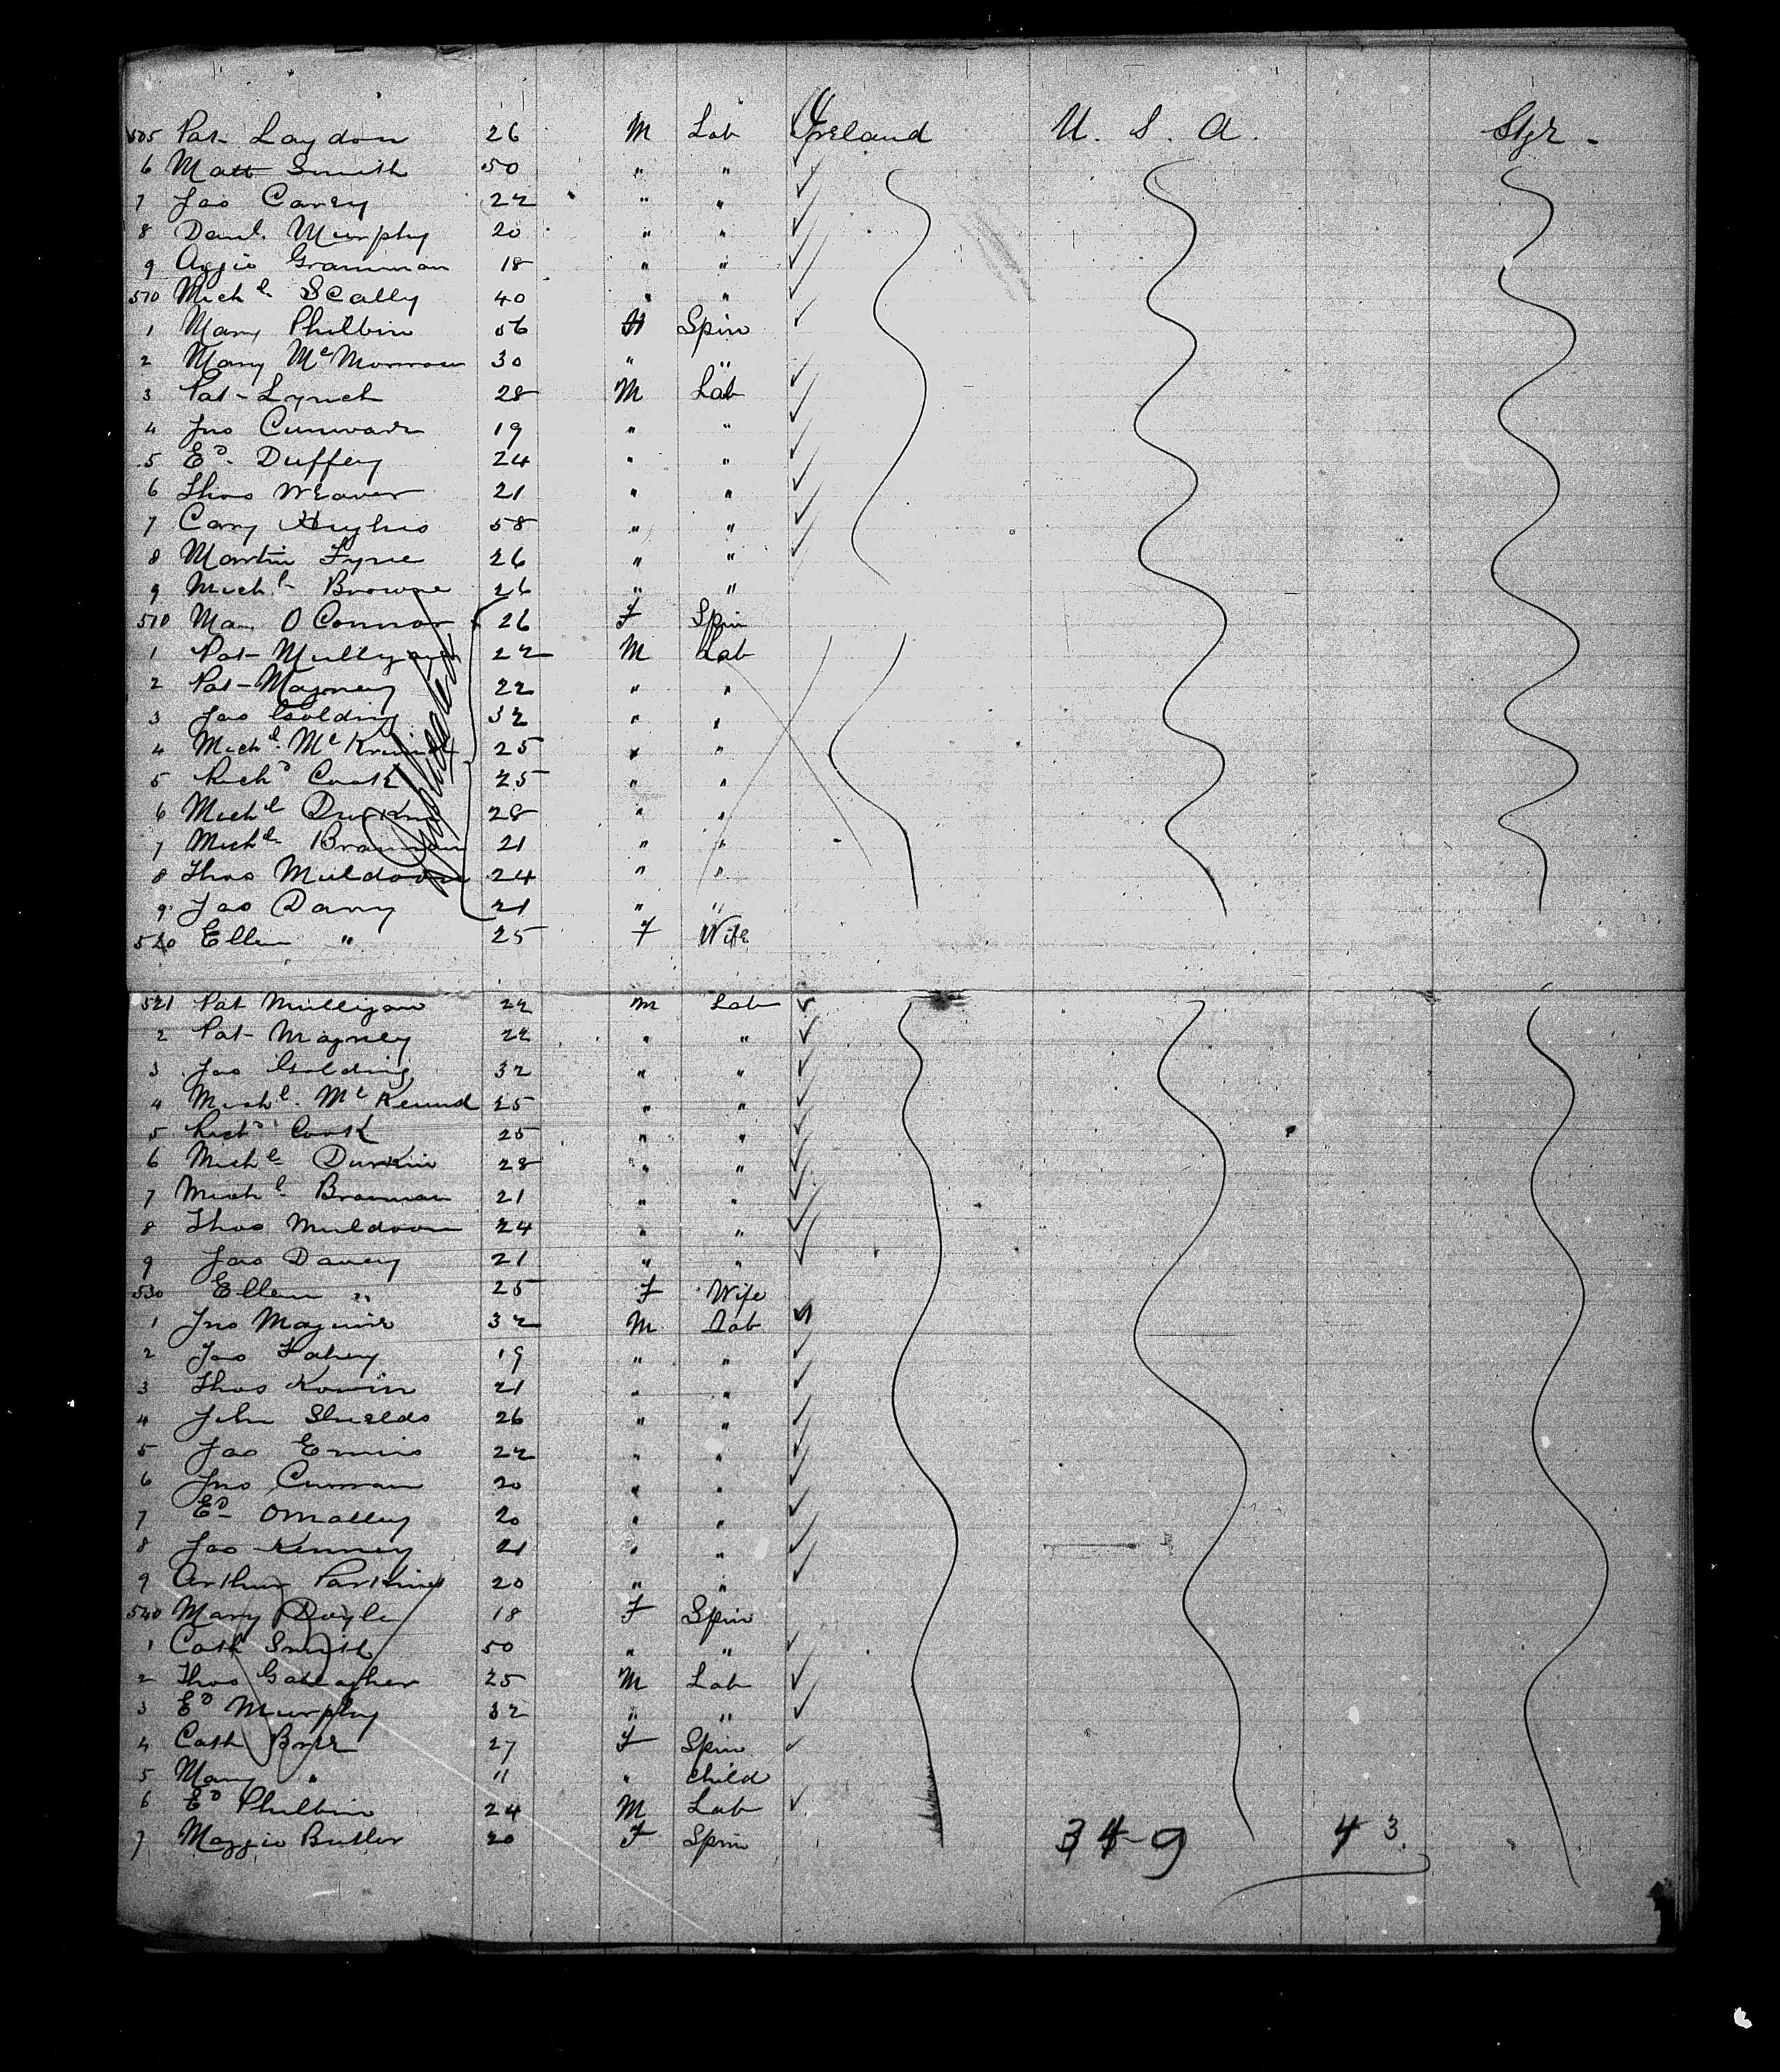 505 Pat Laydon 26 M Lab Ireland U. S. A. Stge
6 Matt Smith 50 " "
7 Jas Carey 22 " "
8 Danl. Murphy 20 " "
9 Aggie Grannan 18 " "
510 Michl Scally 40 " "
1 Mary Philbin 56 Spin
2 Mary McMorrow 30 " "
3 Pat Lynch 28 M Lab
4 Jno 19 " "
5 Ed. Duffey 24 " "
6 Thos Weaver 21 " "
7 Hughes 58 " "
8 Martin Fyne 26 " "
9 Michl Browne 26 " "
510 O Connor 26 F Spin
1 Pat Mulligan 22 M Lab
2 Pat Magney 22 " "
3 Jas Golding 32 " "
4 Michl. Mc 25 " "
5 Richd Cook 25 " "
6 Michl Durkin 28 " "
7 Michl Brannan 21 " "
8 Thos Muldoon 24 " "
9 Jas Davey 21 " "
520 Ellen " 25 F Wife
Duplicated
521 Pat Mulligan 22 M Lab
2 Pat Magney 22 " "
3 Jas Golding 32 " "
4 Michl. Mc 25 " "
5 Richd Cook 25 " "
6 Michl Durkin 28 " "
7 Michl Brannan 21 " "
8 Thos Muldoon 24 " "
9 Jas Davey 21 " "
530 Ellen " 25 F Wife
1 Jno Maguire 32 M Lab
2 Jas Fahey 19 " "
3 Thos 21 " "
4 John Shields 26 " "
5 Jas Ennis 22 " "
6 Jno Curran 20 " "
7 Ed OMalley 20 " "
8 Jas Kenney 21 " "
9 Arthur Parkins 20 " "
540 Mary Doyle 18 F Spin
1 Cath Smith 50 " "
2 Thos Gallagher 25 M Lab
3 Ed Murphy 32 " "
4 Cath 27 F Spin
5 Mary " 11 " Child
6 Ed Philbin 24 M Lab
7 Maggie Butler 20 F Spin
43